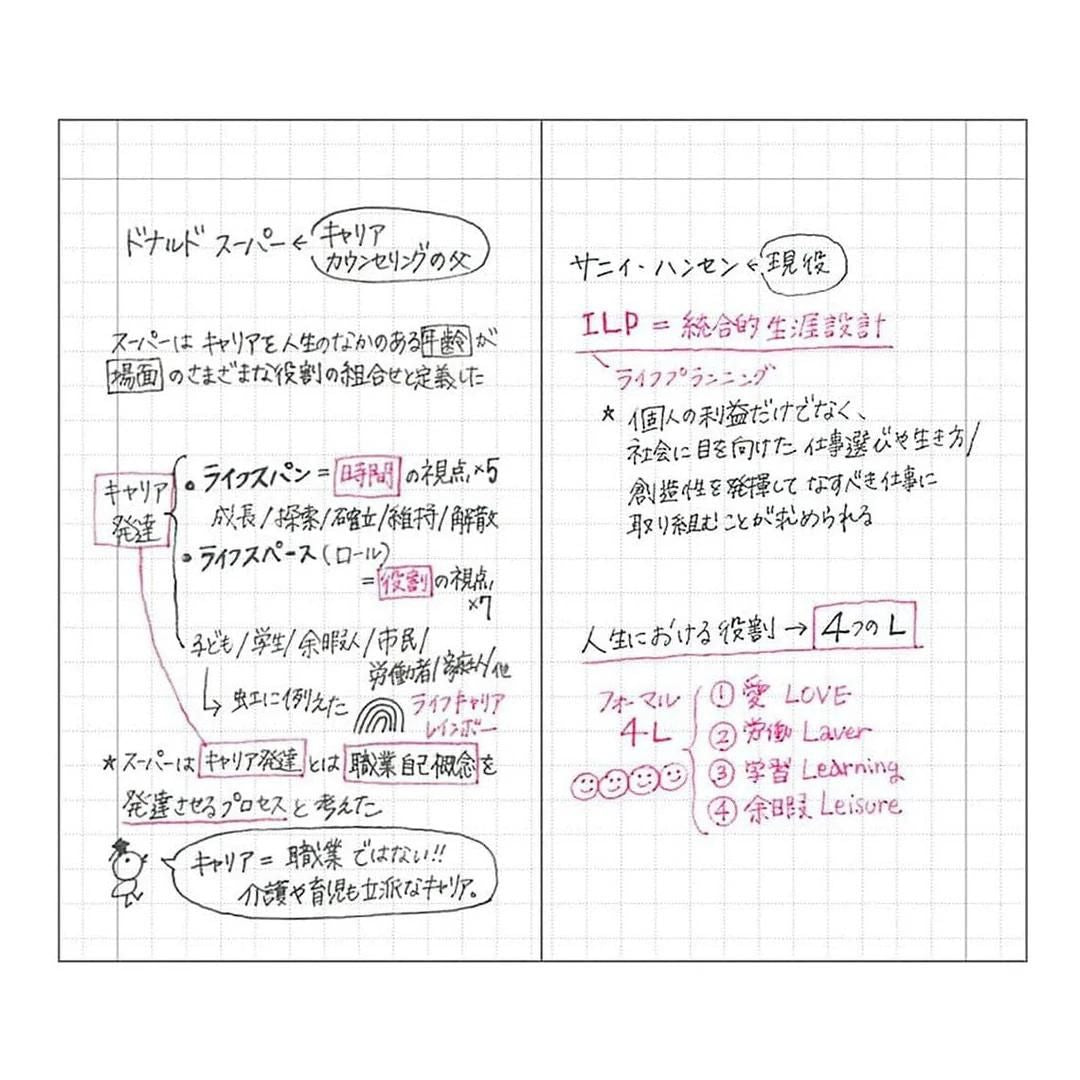 ドナルド スーパー ← キャリア
カウンセリングの父
スーパーは キャリアを人生のなかのある年齢が
場面 のさまざまな役割の組合せと定義した
キャリア
発達
• ライフスパン = 時間 の視点×5
成長/探索/確立/維持/解散
• ライフスペース(ロール)
= 役割 の視点
×7
子ども/学生/余暇人/市民/
労働者/家庭人/他
↳ 虹に例えた
ライフキャリア
レインボー
★ スーパーは キャリア発達 とは 職業自己概念 を
発達させるプロセスと考えた
キャリア = 職業 ではない!!
介護や育児も立派なキャリア。
サニィ・ハンセン ← 現役
ILP = 統合的生涯設計
ライフプランニング
★ 個人の利益だけでなく、
社会に目を向けた 仕事選びや生き方/
創造性を発揮して なすべき仕事に
取り組むことが求められる
人生における役割 → 4つのL
フォーマル
4L
① 愛 LOVE
② 労働 Laver
③ 学習 Learning
④ 余暇 Leisure